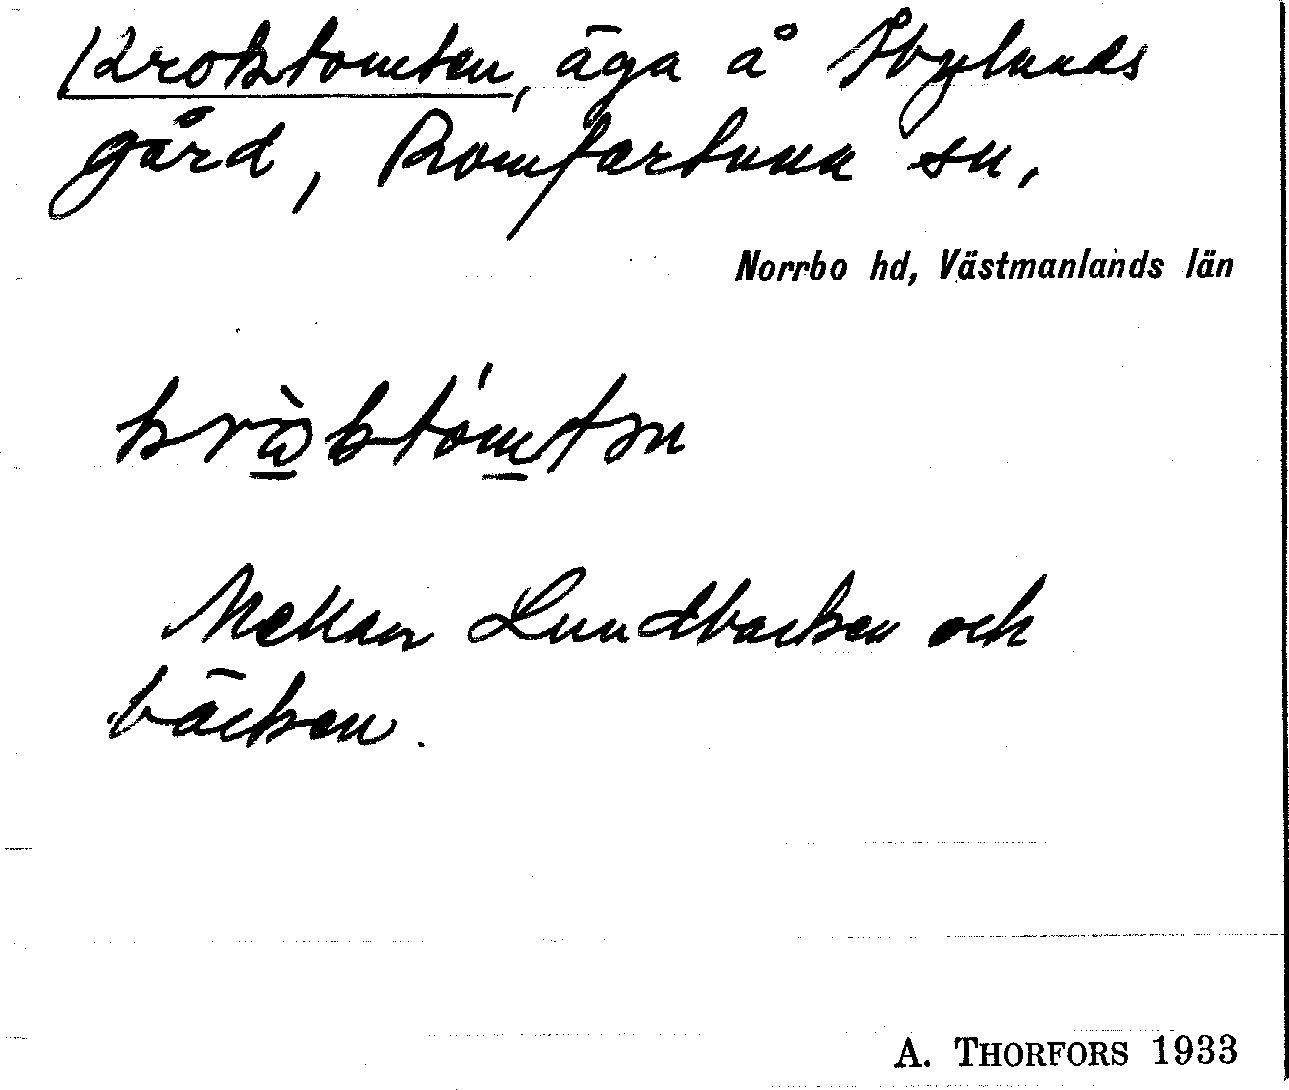 Kroktomten, äga å Skyelunds
gård, Romfartuna sn,
Norrbo hd, Västmanlands län
krὼktómtən
Mellan Lundbacken och
bäcken.
A. THORFORS 1933